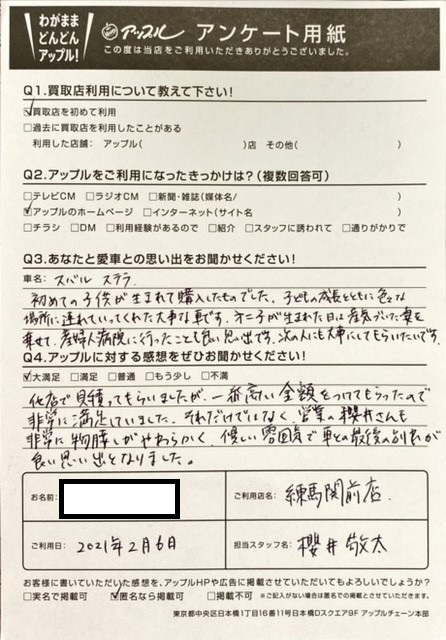 わがまま
どんどん
アップル!
アップル アンケート用紙
この度は当店をご利用いただきありがとうございました。
Q1.買取店利用について教えて下さい!
☑買取店を初めて利用
□過去に買取店を利用したことがある
利用した店舗: アップル( )店 その他( )
Q2.アップルをご利用になったきっかけは?(複数回答可)
□テレビCM □ラジオCM □新聞・雑誌(媒体名/ )
☑アップルのホームページ □インターネット(サイト名 )
□チラシ □DM □利用経験があるので □紹介 □スタッフに誘われて □通りがかりで
Q3.あなたと愛車との思い出をお聞かせください!
車名: スバル ステラ
初めての子供が生まれて購入したものでした。子どもの成長とともに色々な
場所に連れていってくれた大事な車です。オニ子が生まれた日は産気づいた妻を
乗せて、産婦人病院に行ったことも良い思い出です。次の人にも大事にしてもらいたいです。
Q4.アップルに対する感想をぜひお聞かせください!
☑大満足 □満足 □普通 □もう少し □不満
他店で見積ってもらいましたが、一番高い金額をつけてもらったので
非常に満足していました。それだけではなく、営業の櫻井さんも
非常に物腰しがやわらかく、優しい雰囲気で車との最後のお別れが
良い思い出となりました。
お名前:
ご利用店名: 練馬関前店.
ご利用日: 2021年2月6日
担当スタッフ名: 櫻井 敬太
お客様に書いていただいた感想を、アップルHPや広告に掲載させていただいてもよろしいでしょうか?
□実名で掲載可 ☑匿名なら掲載可 □掲載不可 ※ご記入がない場合は匿名での掲載とさせていただきます。
東京都中央区日本橋1丁目16番11号日本橋Dスクエア9F アップルチェーン本部